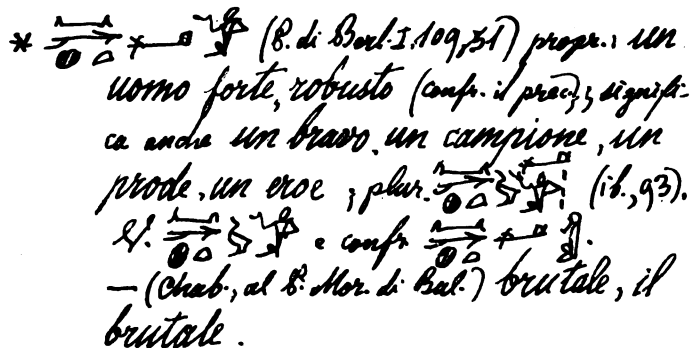 * (P. di Berl. I, 109, 31) propr.: un
uomo forte, robusto (confr. il prec.); signifi-
ca anche un bravo, un campione, un
prode, un eroe; plur. (ib., 93).
V. e confr.
— (Chab., al P. Mor. di Bul.) brutale, il
brutale.